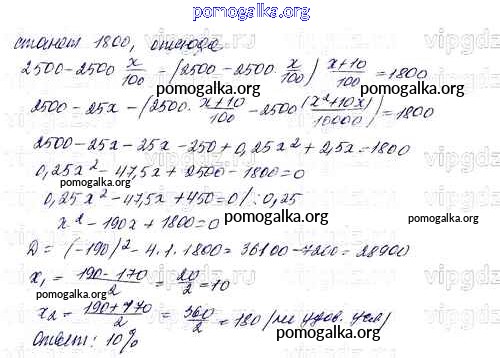 pomogalka.org
станет 1800, отсюда
2500-2500 x/100 - (2500-2500·x/100) x+10/100 = 1800
pomogalka.org
2500-25x-(2500·x+10/100-2500(x²+10x)/10000)=1800
pomogalka.org
2500-25x-25x-250+0,25x²+2,5x=1800
0,25x²-47,5x+2500-1800=0
pomogalka.org
0,25x²-47,5x+450=0/:0,25
x²-190x+1800=0
pomogalka.org
pomogalka.org
D=(-190)²-4·1·1800=36100-7200=28900
x₁=190-170/2=20/2=10
pomogalka.org
x₂=190+170/2=360/2=180 (не удов. усл)
Ответ: 10%
pomogalka.org